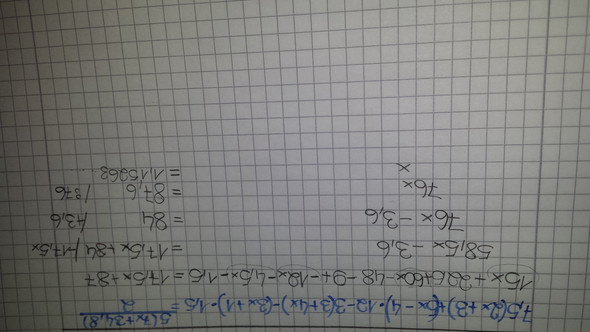 7,5(2x+3)+(5x-4)·12-3(3+4x)-(3x+1)·1,5=5(7x+34,8)/2
15x+22,5+60x-48-9+-12x-4,5x-1,5=17,5x+87
58,5x-3,6 =17,5x+84 /-17,5x
76x-3,6 =84 /+3,6
76x =87,6 /:76
x =1,15263